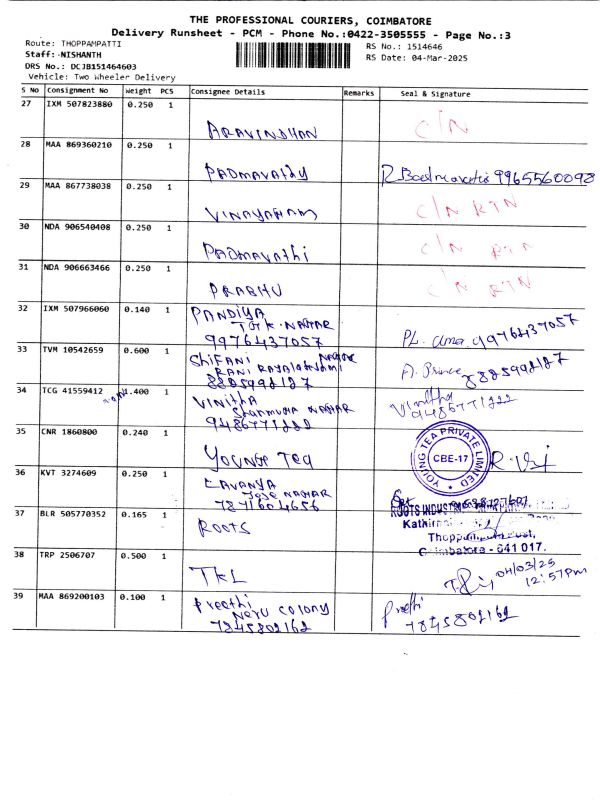 THE PROFESSIONAL COURIERS, COIMBATORE
Delivery Runsheet - PCM - Phone No.:0422-3505555 - Page No.:3
Route: THOPPAMPATTI
RS No.: 1514646
Staff: NISHANTH
RS Date: 04-Mar-2025
DRS No.: DCJB151464603
Vehicle: Two Wheeler Delivery
S No Consignment No Weight PCS Consignee Details Remarks Seal & Signature
27 IXM 507823880 0.250 1
ARAVINDHAN C/N
28 MAA 869360210 0.250 1
PADMAVATHY R. 9965560098
29 MAA 867738038 0.250 1
VINAYAHAM C/N RTN
30 NDA 906540408 0.250 1
PADMAVATHI C/N RTN
31 NDA 906663466 0.250 1
PRABHU C/N RTN
32 IXM 507966060 0.140 1 PANDIYA
NAGAR
9976437057 PL. 9976437057
33 TVM 10542659 0.600 1 SHIFANI NAGAR
RANI
8885998187 Prince 8885998187
34 TCG 41559412 1.400 1 VINITHA
NAGAR
9486771222 Vinitha 9486771222
35 CNR 1860800 0.240 1
YOUNG TEA
YOUNG TEA PRIVATE LIMITED
CBE-17
36 KVT 3274609 0.250 1 LAVANYA
JOSE NAGAR
7871604656
37 BLR 505770352 0.165 1
ROOTS
ROOTS
Coimbatore - 641 017.
38 TRP 2506707 0.500 1
TKL
04/03/25
12:57pm
39 MAA 869200103 0.100 1 Preethi
Neru colony
7845802162 Preethi 7845802162